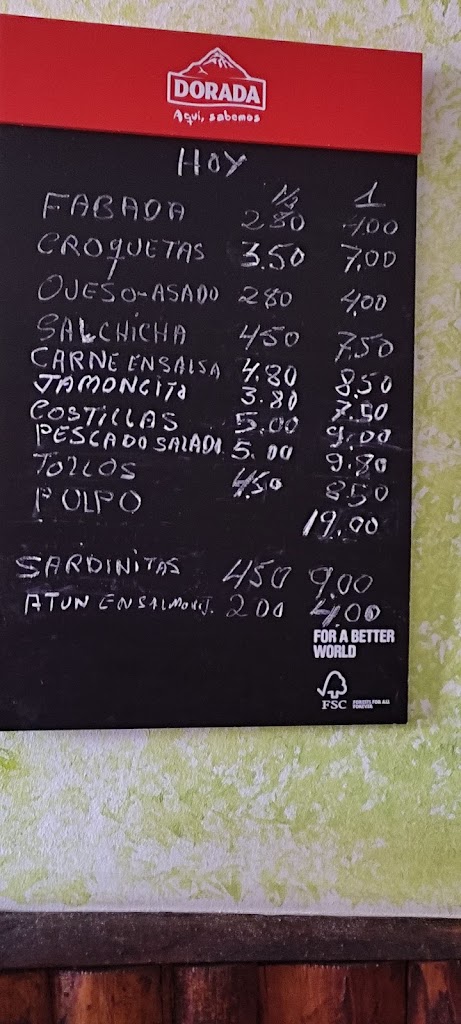 DORADA
Aquí, sabemos
HOY
1/2 1
FABADA 280 400
CROQUETAS 3.50 7.00
QUESO-ASADO 280 4,00
SALCHICHA 450 7.50
CARNE EN SALSA 4.80 8.50
JAMONCITO 3.80 7.50
COSTILLAS 5.00 9.00
PESCADO SALADO 5.00 9.80
TOLLOS 4.50 8.50
PULPO 19.00
SARDINITAS 450 9.00
ATUN EN 200 4.00
FOR A BETTER
WORLD
FSC
FORESTS FOR ALL
FOREVER